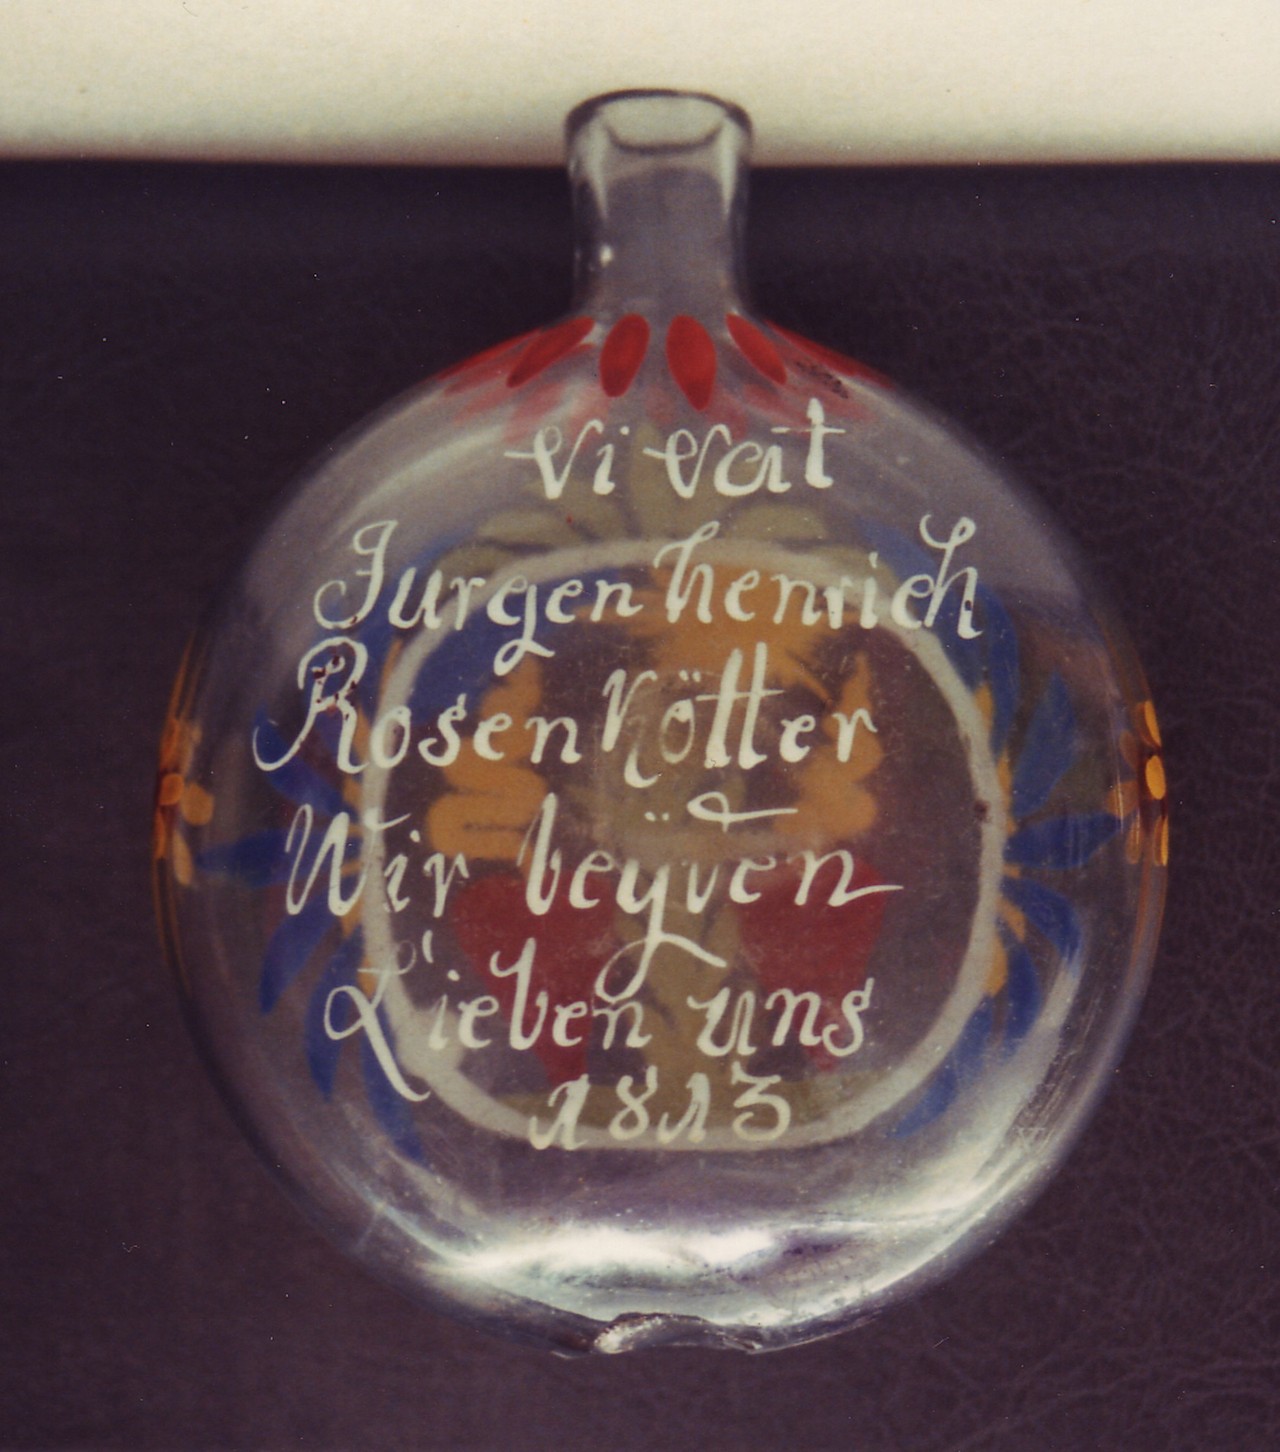 vi vat
Jurgen henrich
Rosen Kötter
Wir beÿden
Lieben uns
1813